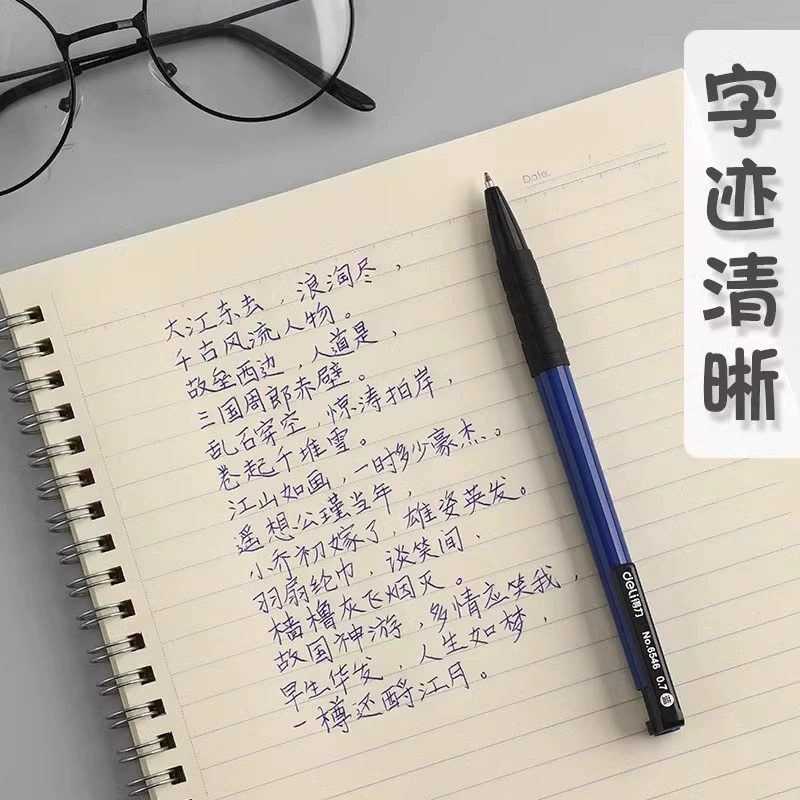 字迹清晰
Date.
大江东去，浪淘尽，
千古风流人物。
故垒西边，人道是，
三国周郎赤壁。
乱石穿空，惊涛拍岸，
卷起千堆雪。
江山如画，一时多少豪杰。
遥想公瑾当年，
小乔初嫁了，雄姿英发。
羽扇纶巾，谈笑间，
樯橹灰飞烟灭。
故国神游，多情应笑我，
早生华发，人生如梦，
一樽还酹江月。
deli得力 No.6546 0.7 蓝